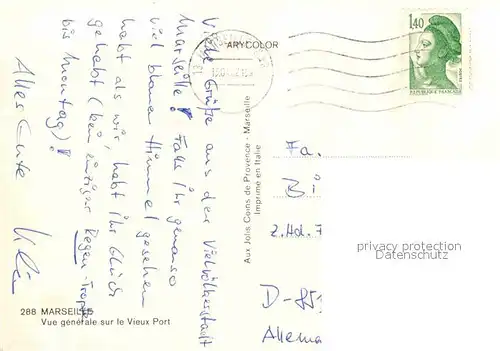 Viele Grüße aus der Vielvölkerstadt
Marseille! Falls ihr genauso
viel blauen Himmel gesehen
habt als wir, habt ihr Glück
gehabt (kein einziger Regen-Tropfen
bis Montag)!
Alles Gute
ARYCOLOR
1,40
REPUBLIQUE FRANÇAISE
Aux Jolis Coins de Provence - Marseille
Imprimé en Italie
Fa.
Bi
z.Hd.
D-85
Allema
privacy protection
Datenschutz
288 MARSEILLE
Vue générale sur le Vieux Port